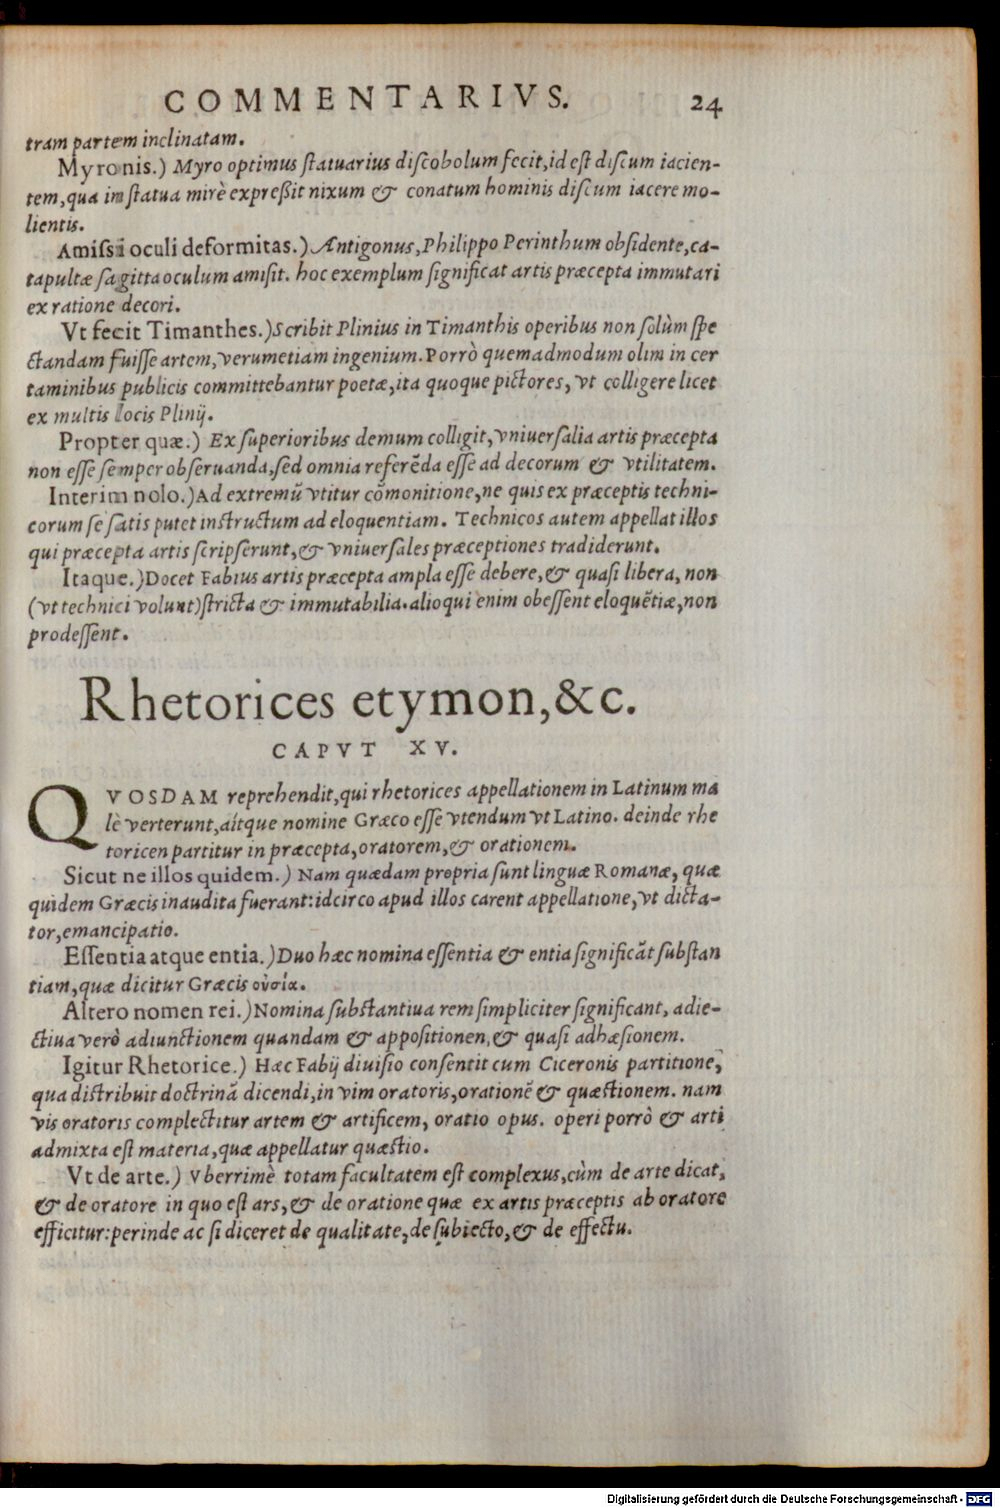 COMMENTARIVS. 24
tram partem inclinatam.
Myronis.) Myro optimus ſtatuarius diſcobolum fecit, id eſt diſcum iacien-
tem, qua in ſtatua mirè expreßit nixum & conatum hominis diſcum iacere mo-
lientis.
Amiſsi oculi deformitas.) Antigonus, Philippo Perinthum obſidente, ca-
tapultæ ſagitta oculum amiſit. hoc exemplum ſignificat artis præcepta immutari
ex ratione decori.
Vt fecit Timanthes.) Scribit Plinius in Timanthis operibus non ſolùm ſpe
ctandam fuiſſe artem, verumetiam ingenium. Porrò quemadmodum olim in cer
taminibus publicis committebantur poetæ, ita quoque pictores, vt colligere licet
ex multis locis Plinij.
Propter quæ.) Ex ſuperioribus demum colligit, vniuerſalia artis præcepta
non eſſe ſemper obſeruanda, ſed omnia referẽda eſſe ad decorum & vtilitatem.
Interim nolo.) Ad extremũ vtitur cõmonitione, ne quis ex præceptis techni-
corum ſe ſatis putet inſtructum ad eloquentiam. Technicos autem appellat illos
qui præcepta artis ſcripſerunt, & vniuerſales præceptiones tradiderunt.
Itaque.) Docet Fabius artis præcepta ampla eſſe debere, & quaſi libera, non
(vt technici volunt) ſtricta & immutabilia. alioqui enim obeſſent eloquẽtiæ, non
prodeſſent.
Rhetorices etymon, &c.
CAPVT XV.
QVOSDAM reprehendit, qui rhetorices appellationem in Latinum ma
lè verterunt, aítque nomine Græco eſſe vtendum vt Latino. deinde rhe
toricen partitur in præcepta, oratorem, & orationem.
Sicut ne illos quidem.) Nam quædam propria ſunt linguæ Romanæ, quæ
quidem Græcis inaudita fuerant: idcirco apud illos carent appellatione, vt dicta-
tor, emancipatio.
Eſſentia atque entia.) Duo hæc nomina eſſentia & entia ſignificãt ſubſtan
tiam, quæ dicitur Græcis οὐσία.
Altero nomen rei.) Nomina ſubſtantiua rem ſimpliciter ſignificant, adie-
ctiua verò adiunctionem quandam & appoſitionen, & quaſi adhæſionem.
Igitur Rhetorice.) Hæc Fabij diuiſio conſentit cum Ciceronis partitione,
qua diſtribuit doctrinã dicendi, in vim oratoris, orationẽ & quæſtionem. nam
vis oratoris complectitur artem & artificem, oratio opus. operi porrò & arti
admixta eſt materia, quæ appellatur quæſtio.
Vt de arte.) Vberrimè totam facultatem eſt complexus, cùm de arte dicat,
& de oratore in quo eſt ars, & de oratione quæ ex artis præceptis ab oratore
efficitur: perinde ac ſi diceret de qualitate, de ſubiecto, & de effectu.
Digitalisierung gefördert durch die Deutsche Forschungsgemeinschaft - DFG